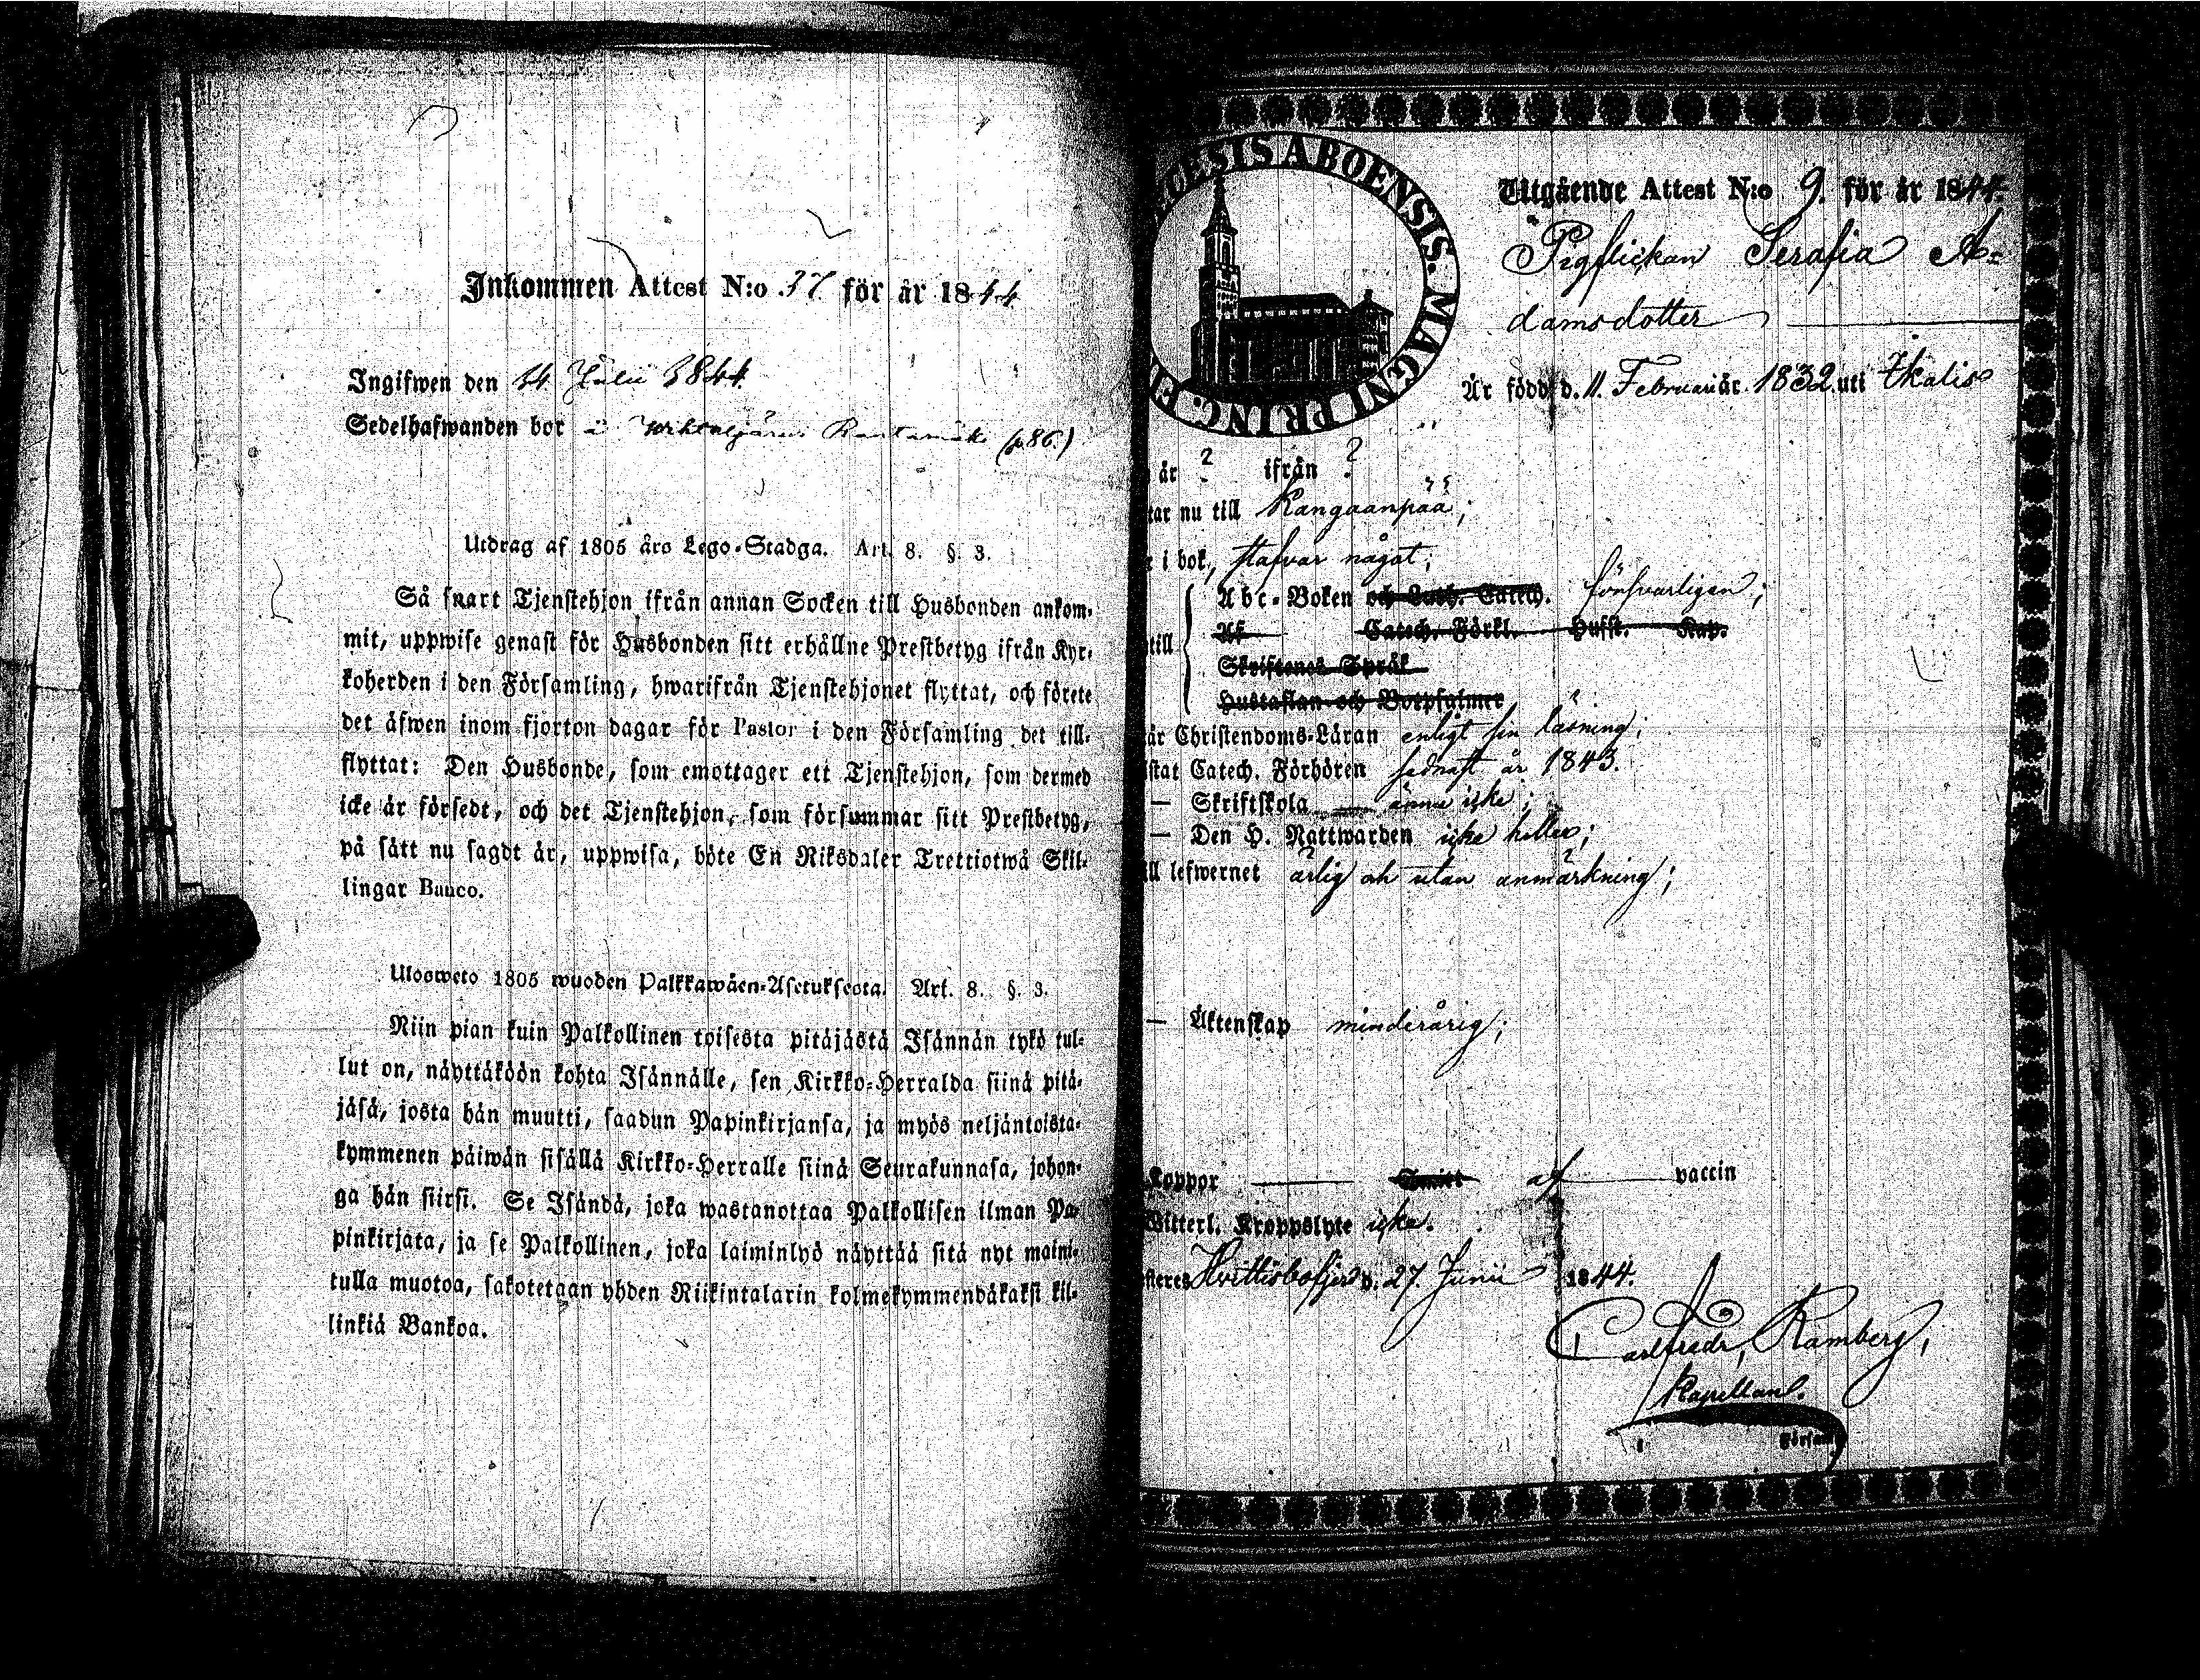 Inkommen Attest N:o 37 för år 1844
Ingifwen den 14 Julii 1844.
Sedelhafwanden bor i (p.86.)
Utdrag af 1805 års Lego-Stadga. Art. 8. §. 3.
Så snart Tjenstehjon ifrån annan Socken till Husbonden ankom-
mit, uppwise genast för Husbonden sitt erhållne Prestbetyg ifrån Kyr-
koherden i den Församling, hwarifrån Tjenstehjonet flyttat, och förete
det äfwen inom fjorton dagar för Pastor i den Församling det till-
flyttat: Den Husbonde, som emottager ett Tjenstehjon, som dermed
icke är försedt, och det Tjenstehjon, som försummar sitt Prestbetyg,
på sätt nu sagdt är, uppwisa, böte En Riksdaler Trettiotwå Skil-
lingar Banco.
Ulosweto 1805 wuoden Palkkawäen-Asetuksesta. Art. 8. §. 3.
Niin pian kuin Palkollinen toisesta pitäjästä Isännän tykö tul-
lut on, näyttäköön kohta Isännälle, sen Kirkko-Herralda siinä pitä-
jäsä, josta hän muutti, saadun Papinkirjansa, ja myös neljäntoista-
kymmenen päiwän sisällä Kirkko-Herralle siinä Seurakunnasa, johon-
ga hän siirsi. Se Isändä, joka wastanottaa Palkollisen ilman Pa-
pinkirjata, ja se Palkollinen, joka laiminlyö näyttää sitä nyt maini-
tulla muotoa, sakotetaan yhden Riikintalarin kolmekymmendäkaksi kil-
linkiä Bankoa.
OESIS ABOENSIS. MAGNI PRINC. F
Utgående Attest N:o 9. för år 1844.
Pigflickan Serafia A=
damsdotter
Är född d. 11. Februarii år 1832. uti Ikalis
år ? ifrån ?
tar nu till Kangaanpää;
i bok, stafvar något;
Abc-Boken och Luth. Catech. försvarligen;
till Af Catech. Förkl. Hufst. Kap.
Skriftenes Språk
Hustaflan och Botpsalmer
är Christendoms-Läran enligt sin läsning;
istat Catech. Förhören sednast år 1843.
— Skriftskola ännu icke;
— Den H. Nattwarden icke heller;
ill lefwernet ärlig och utan anmärkning;
— Äktenskap minderårig;
Koppor Smitt af vaccin
Witterl. Kroppslyte icke.
steres Hvittisbofjerd d. 27. Junii 1844.
Carl Fredr. Ramberg,
Kapellan.
i Församl